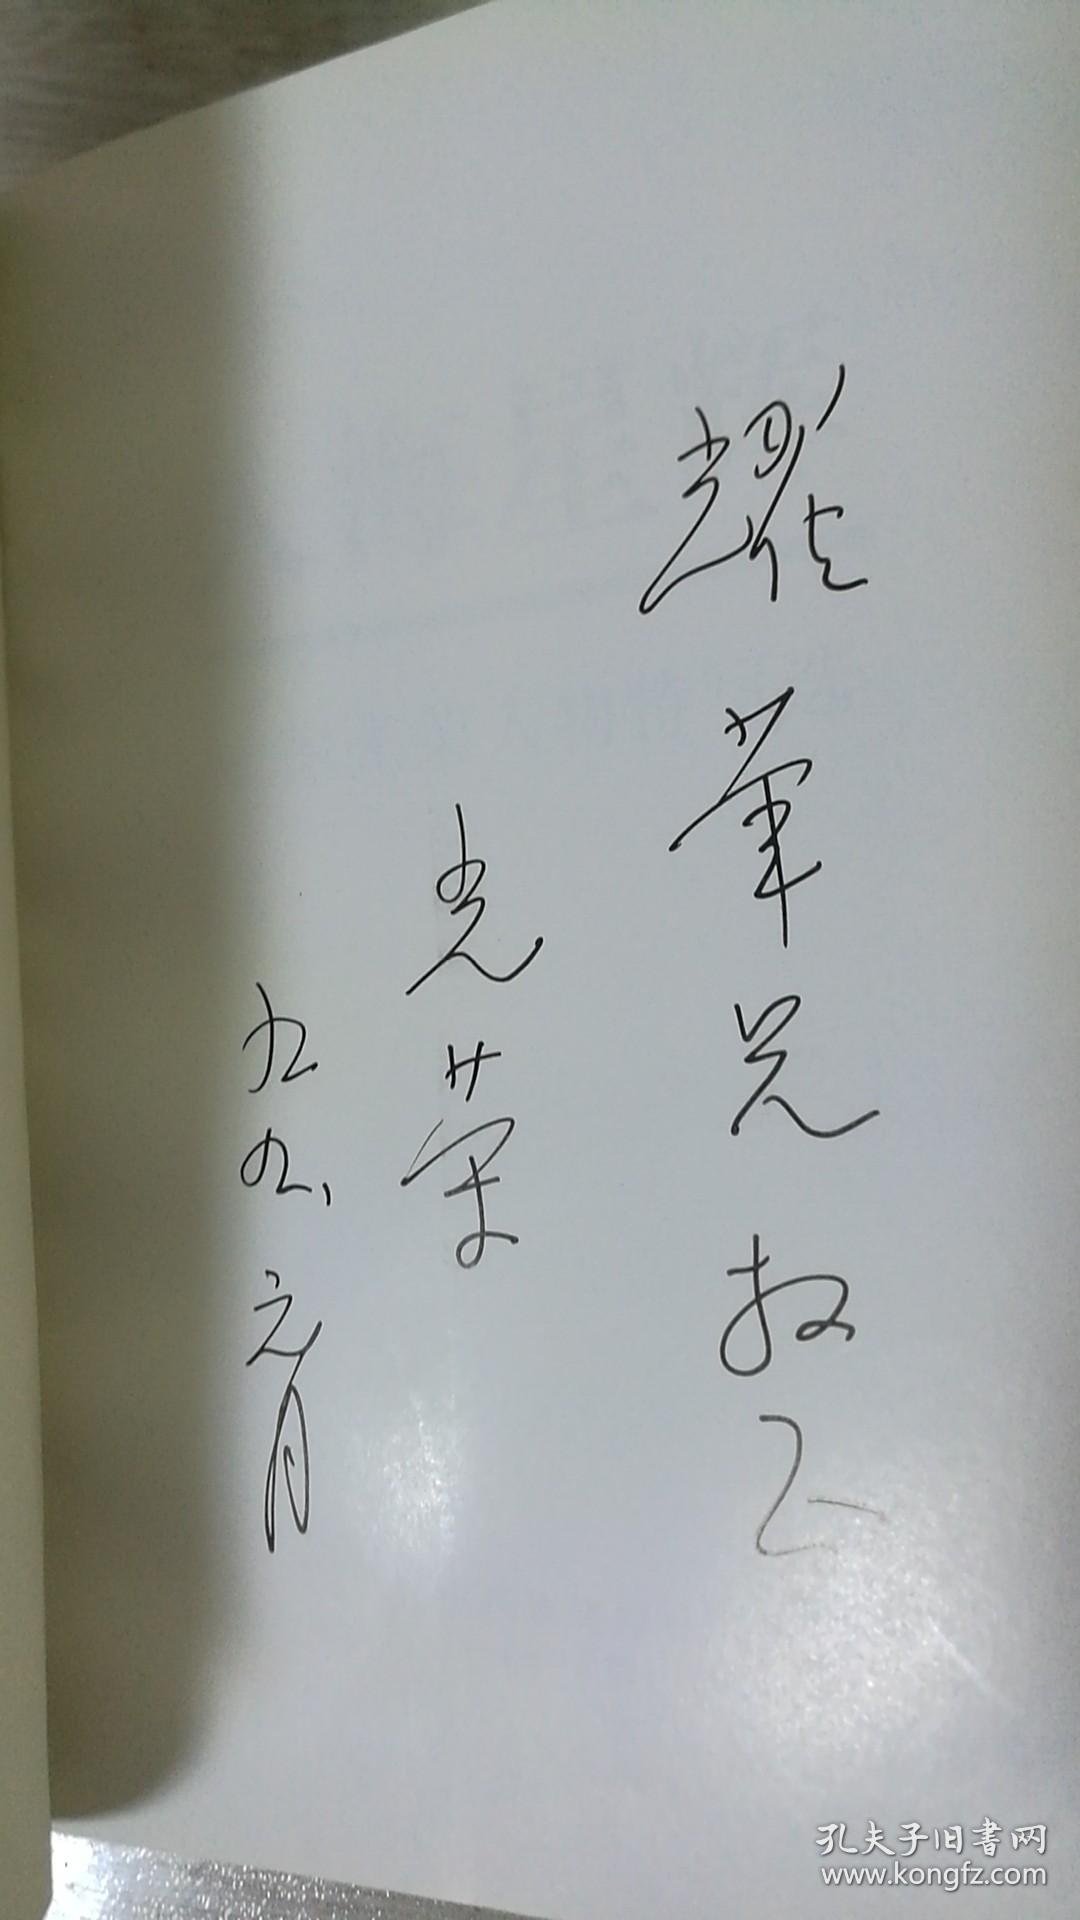 耀華兄教正
光荣
九九、元月
孔夫子旧書网
www.kongfz.com